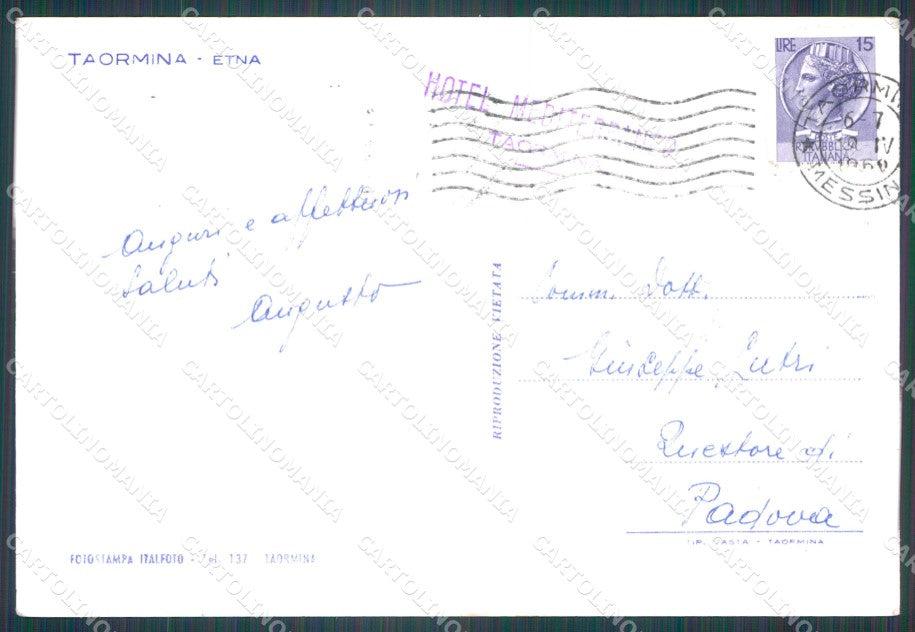 TAORMINA - ETNA
HOTEL MEDITERRANEO
TAORMINA
LIRE 15
REPUBBLICA
ITALIANA
TAORMINA
6-7
IV
MESSINA
Auguri e affettuosi
Saluti
Augusto
RIPRODUZIONE VIETATA
Comm. Dott.
Giuseppe Lutri
Questore di
Padova
TIP. CASTA - TAORMINA
FOTOSTAMPA ITALFOTO - Tel. 137 TAORMINA
CARTOLINOMANIA